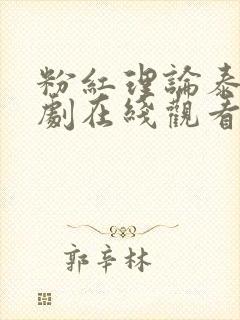 粉紅理論泰
劇在綫觀看
郭辛林